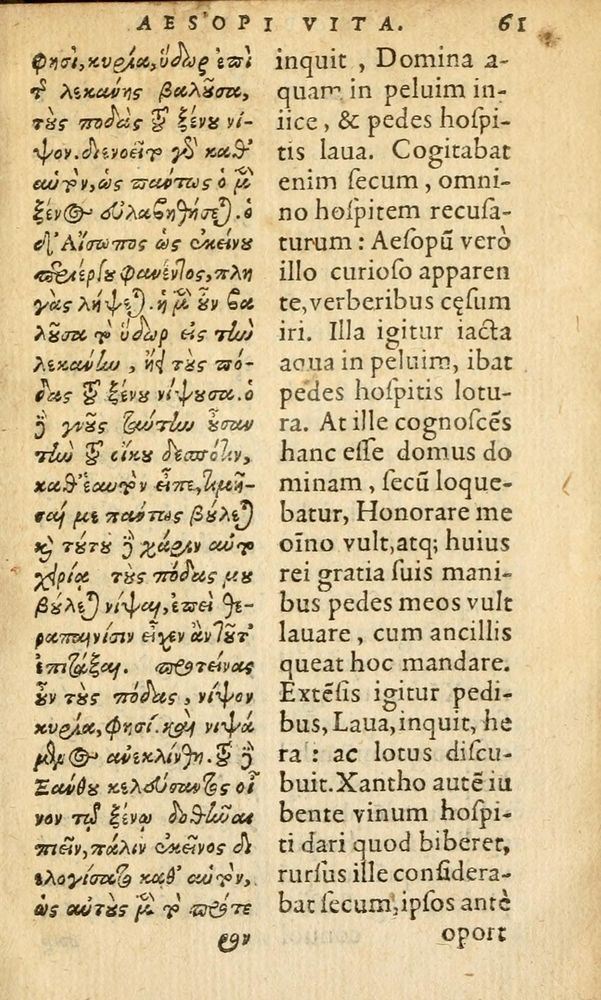 AESOPI VITA. 61
φησὶ, κυρία, ὕδωρ ἐπὶ
τ̀ λεκάνης βαλοῦσα,
τοὺς πόδας τοῦ ξένου νί-
ψον. διενοεῖτο γὰρ καθ'
αὑτὸν, ὡς πάντως ὁ μὲν
ξένος εὐλαβηθήσεται. ὁ
δ' Αἴσωπος ὡς ἐκείνου
περιέργου φανέντος, πλη
γὰς λήψεται. ἡ μὲν οὖν βα
λοῦσα τὸ ὕδωρ εἰς τὴν
λεκάνην, ᾔει τοὺς πό-
δας τοῦ ξένου νίψουσα. ὁ
δὲ γνοὺς ταύτην οὖσαν
τὴν τοῦ οἴκου δεσπότιν,
καθ' ἑαυτὸν εἶπε, τιμῆ-
σαί με πάντως βούλεται
καὶ τούτου δὲ χάριν αὐτο
χειρία τοὺς πόδας μου
βούλεται νίψαι, ἐπεὶ θε-
ραπαινίσιν εἶχεν ἂν τοῦτ'
ἐπιτάξαι. προτείνας
οὖν τοὺς πόδας, νίψον
κυρία, φησί. καὶ νιψά
μενος ἀνεκλίνθη. τοῦ δὲ
Ξάνθου κελεύσαντος οἶ
νον τῷ ξένῳ δοθῆναι
πιεῖν, πάλιν ἐκεῖνος δι
ελογίσατο καθ' αὑτὸν,
ὡς αὐτοὺς μὲν τὸ πρότε
ρον
inquit, Domina a-
quam in peluim in-
iice, & pedes hospi-
tis laua. Cogitabat
enim secum, omni-
no hospitem recusa-
turum: Aesopũ verò
illo curioso apparen
te, verberibus cęsum
iri. Illa igitur iacta
aqua in peluim, ibat
pedes hospitis lotu-
ra. At ille cognoscẽs
hanc esse domus do
minam, secũ loque-
batur, Honorare me
oĩno vult, atq; huius
rei gratia suis mani-
bus pedes meos vult
lauare, cum ancillis
queat hoc mandare.
Extẽsis igitur pedi-
bus, Laua, inquit, he
ra: ac lotus discu-
buit. Xantho autẽ iu
bente vinum hospi-
ti dari quod biberet,
rursus ille considera-
bat secum, ipsos antè
oport